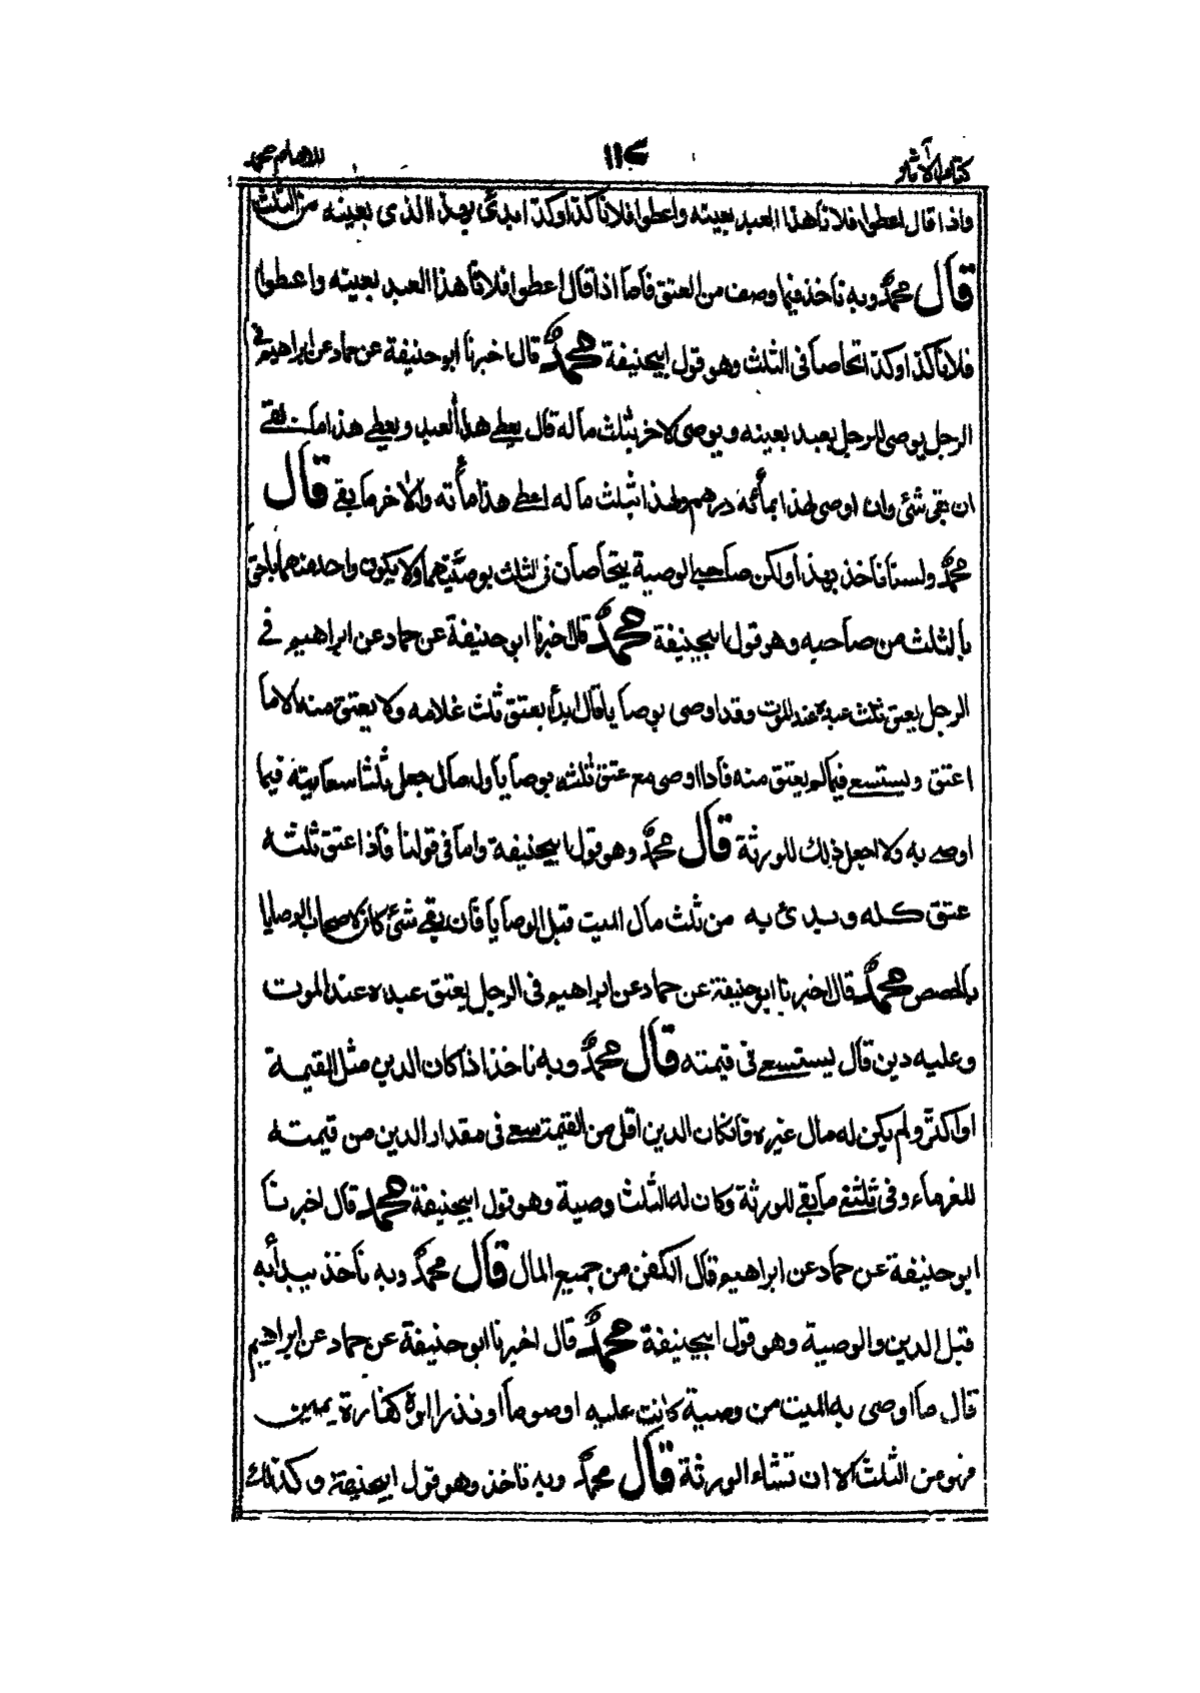 كتاب الآثار ١١٧ للامام محمد
واذا قال اعطوا فلانا هذا العبد بعينه واعطوا فلانا كذا وكذا ابدئ بهذا الذى بعينه من الثلث
قال محمد وبه نأخذ فيما وصف من العتق فأما اذا قال اعطوا فلانا هذا العبد بعينه واعطوا
فلانا كذا وكذا تحاصا فى الثلث وهو قول ابيحنيفة محمد قال اخبرنا ابو حنيفة عن حماد عن ابراهيم فى
الرجل يوصى للرجل بعبد بعينه ويوصى لاخر بثلث ماله قال يعطى هذا العبد ويعطى هذا ما بقى
ان بقى شئ وان اوصى لهذا بمائة درهم ولهذا بثلث ماله اعطى هذا مائة والاخر ما بقى قال
محمد ولسنا نأخذ بهذا ولكن صاحبى الوصية يتحاصان فى الثلث بوصيتهما ولا يكون واحد منهما باحق
بالثلث من صاحبه وهو قول ابيحنيفة محمد قال اخبرنا ابو حنيفة عن حماد عن ابراهيم فى
الرجل يعتق ثلث عبده عند الموت وقد اوصى بوصايا قال ابدأ بعتق ثلث غلامه ولا يعتق منه الا ما
اعتق ويستسعى فيما لم يعتق منه فاذا اوصى مع عتق ثلثه بوصايا وله مال جعل ثلثا سعايته فيما
اوصى به ولا اجعل ذلك للورثة قال محمد وهو قول ابيحنيفة واما فى قولنا فاذا اعتق ثلثه
عتق كله وبدئ به من ثلث مال الميت قبل الوصايا فان بقى شئ كان لاصحاب الوصايا
بالحصص محمد قال اخبرنا ابو حنيفة عن حماد عن ابراهيم فى الرجل يعتق عبده عند الموت
وعليه دين قال يستسعى فى قيمته قال محمد وبه نأخذ اذا كان الدين مثل القيمة
او اكثر ولم يكن له مال غيره فان كان الدين اقل من القيمة سعى فى مقدار الدين من قيمته
للغرماء وفى ثلثى ما بقى للورثة وكان له الثلث وصية وهو قول ابيحنيفة محمد قال اخبرنا
ابو حنيفة عن حماد عن ابراهيم قال الكفن من جميع المال قال محمد وبه نأخذ يبدأ به
قبل الدين والوصية وهو قول ابيحنيفة محمد قال اخبرنا ابو حنيفة عن حماد عن ابراهيم
قال ما اوصى به الميت من وصية كانت عليه او صوما او نذرا او كفارة يمين
فهو من الثلث الا ان تشاء الورثة قال محمد وبه ناخذ وهو قول ابيحنيفة وكذلك